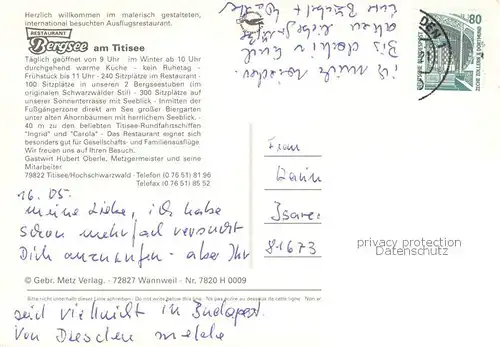 Herzlich willkommen im malerisch gestalteten,
international besuchten Ausflugsrestaurant.
RESTAURANT
Bergsee am Titisee
Täglich geöffnet von 9 Uhr im Winter ab 10 Uhr
durchgehend warme Küche - kein Ruhetag -
Frühstück bis 11 Uhr - 240 Sitzplätze im Restaurant -
100 Sitzplätze in unseren 2 Bergseestuben (im
originalen Schwarzwälder Still) - 300 Sitzplätze auf
unserer Sonnenterrasse mit Seeblick - Inmitten der
Fußgängerzone direkt am See großer Biergarten
unter alten Ahornbäumen mit herrlichem Seeblick. -
40 m zu den beliebten Titisee-Rundfahrtschiffen
"Ingrid" und "Carola" - Das Restaurant eignet sich
besonders gut für Gesellschafts- und Familienausflüge
Wir freuen uns auf Ihren Besuch.
Gastwirt Hubert Oberle, Metzgermeister und seine
Mitarbeiter
79822 Titisee/Hochschwarzwald - Telefon (0 76 51) 81 96
Telefax (0 76 51) 85 52
16.05.
meine Liebe, ich habe
schon mehrfach versucht
Dich anzurufen - aber Ihr
© Gebr. Metz Verlag. - 72827 Wannweil - Nr. 7820 H 0009
Bitte nicht unterhalb dieser Linie schreiben
seid vielleicht in Budapest.
Von Dresden melde
ich mich wieder.
Bis dahin Euch
allen liebe Grüße
Eure Bärbel +
Frau
Karin
Isare
81673
80
DEN 1
privacy protection
Datenschutz